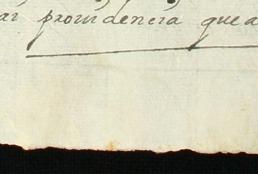 ar providencia que a